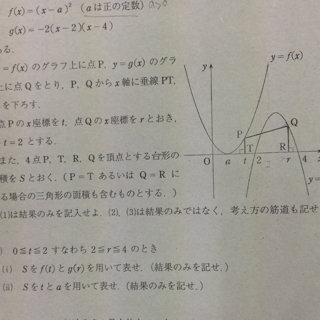 f(x)=(x-a)² (aは正の定数) a>0
g(x)=-2(x-2)(x-4)
ある.
=f(x)のグラフ上に点P, y=g(x)のグラ
上に点Qをとり, P, Qからx軸に垂線PT,
を下ろす.
点Pのx座標をt, 点Qのx座標をrとおき,
t=2とする.
また, 4点P, T, R, Qを頂点とする台形の
積をSとおく. (P=TあるいはQ=Rに
る場合の三角形の面積も含むものとする.)
(1)は結果のみを記入せよ. (2), (3)は結果のみではなく, 考え方の筋道も記せ
) 0≦t≦2 すなわち 2≦r≦4 のとき
(i) Sをf(t)とg(r)を用いて表せ. (結果のみを記せ.)
(ii) Sをtとaを用いて表せ. (結果のみを記せ.)
y
y=f(x)
P
Q
T
R
O
a
t
2
r
4
x
y=